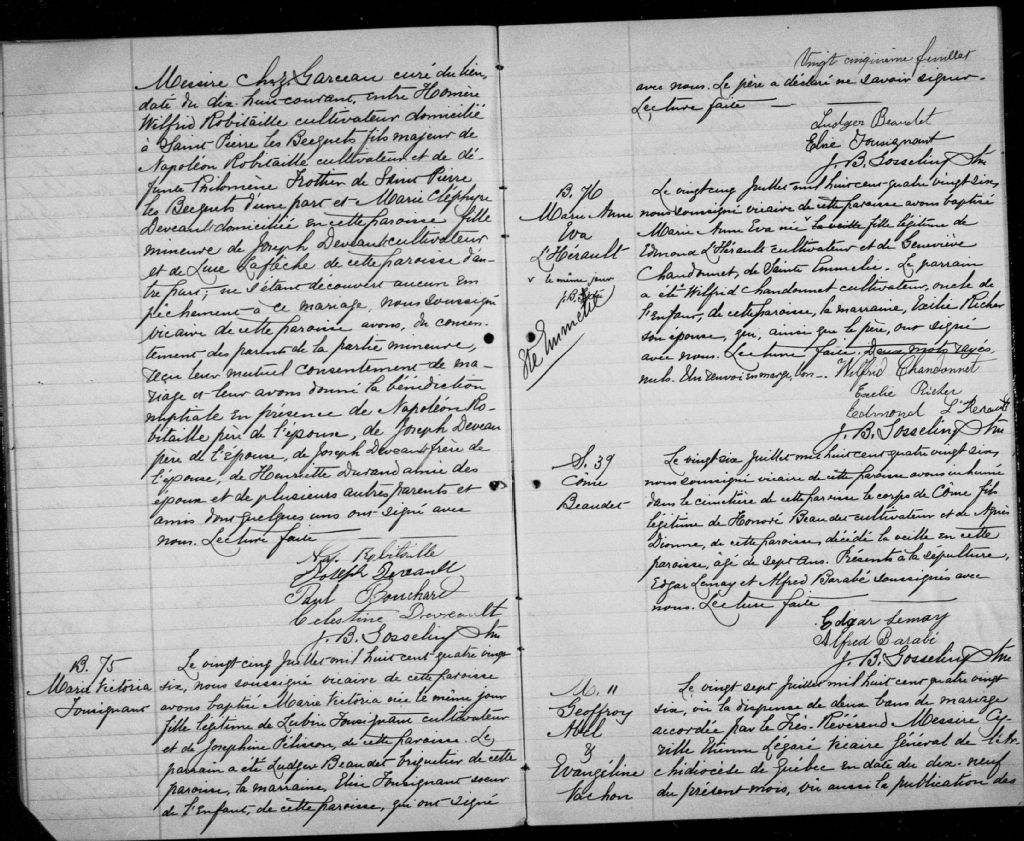 Messire Chs Z. Garceau curé du lien,
daté du dix-huit courant, entre Homère
Wilfrid Robitaille cultivateur domicilié
à Saint Pierre les Becquets fils majeur de
Napoléon Robitaille cultivateur et de dé-
funte Philomène Trottier de Saint Pierre
les Becquets d'une part et Marie
Deveault domiciliée en cette paroisse fille
mineure de Joseph Deveault cultivateur
et de Luce Laflèche de cette paroisse d'au-
tre part; ne s'étant découvert aucun em-
pêchement à ce mariage, nous soussigné
vicaire de cette paroisse avons, du consen-
tement des parents de la partie mineure,
reçu leur mutuel consentement de ma-
riage et leur avons donné la bénédiction
nuptiale en présence de Napoléon Ro-
bitaille père de l'époux, de Joseph Deveau
père de l'épouse, de Joseph Deveault frère de
l'épouse, de Henriette Durand amie des
époux et de plusieurs autres parents et
amis dont quelques uns ont signé avec
nous. Lecture faite —
Nap. Robitaille
Joseph Deveault
Paul Bouchard
Celestine Deveault
J. B. Gosselin, Ptre
B. 75
Marie Victoria
Tousignant
Le vingt cinq Juillet mil huit cent quatre vingt
six, nous soussigné vicaire de cette paroisse
avons baptisé Marie Victoria née le même jour
fille légitime de Lubin Tousignant cultivateur
et de Josephine Pélisson, de cette paroisse. Le
parrain a été Ludger Beaudet briquetier de cette
paroisse, la marraine, Elise Tousignant soeur
de l'Enfant, de cette paroisse, qui ont signé
Vingt cinquième feuillet
avec nous. Le père a déclaré ne savoir signer.
Lecture faite —
Ludger Beaudet
Elise Tousignant
J. B. Gosselin, Ptre
B. 76
Marie Anne
Eva
L'Hérault
v le même jour
Ste Emmelie
Le vingt cinq Juillet mil huit cent quatre vingt six
nous soussigné vicaire de cette paroisse avons baptisé
Marie Anne Eva née v la veille fille légitime de
Edmond L'Hérault cultivateur et de Geneviève
Chandonnet, de Sainte Emmelie. Le parrain
a été Wilfrid Chandonnet cultivateur, oncle de
l'Enfant, de cette paroisse, la marraine, Exilie Richer
son épouse, qui, ainsi que le père, ont signé
avec nous. Lecture faite. Deux mots rayés
nuls. Un renvoi en marge, bon —. Wilfrid Chandonnet
Exelie Richer
Edmond L'Herault
J. B. Gosselin, Ptre
S. 39
Côme
Beaudet
Le vingt six Juillet mil huit cent quatre vingt six
nous soussigné vicaire de cette paroisse avons inhumé
dans le cimetière de cette paroisse le corps de Côme fils
légitime de Honoré Beaudet cultivateur et de Agnès
Dionne, de cette paroisse, décédé la veille en cette
paroisse, âgé de sept ans. Présents à la sépulture,
Edgar Lemay et Alfred Barabé soussignés avec
nous. Lecture faite —
Edgar Lemay
Alfred Barabé
J. B. Gosselin, Ptre
M. 11
Geoffroy
Abel
&
Evangéline
Vachon
Le vingt sept Juillet mil huit cent quatre vingt
six, vu la dispense de deux bans de mariage
accordée par le Très-Révérend Messire Cy-
rille Etienne Légaré Vicaire Général de l'Ar-
chidiocèse de Québec en date du dix-neuf
du présent mois, vu aussi la publication des